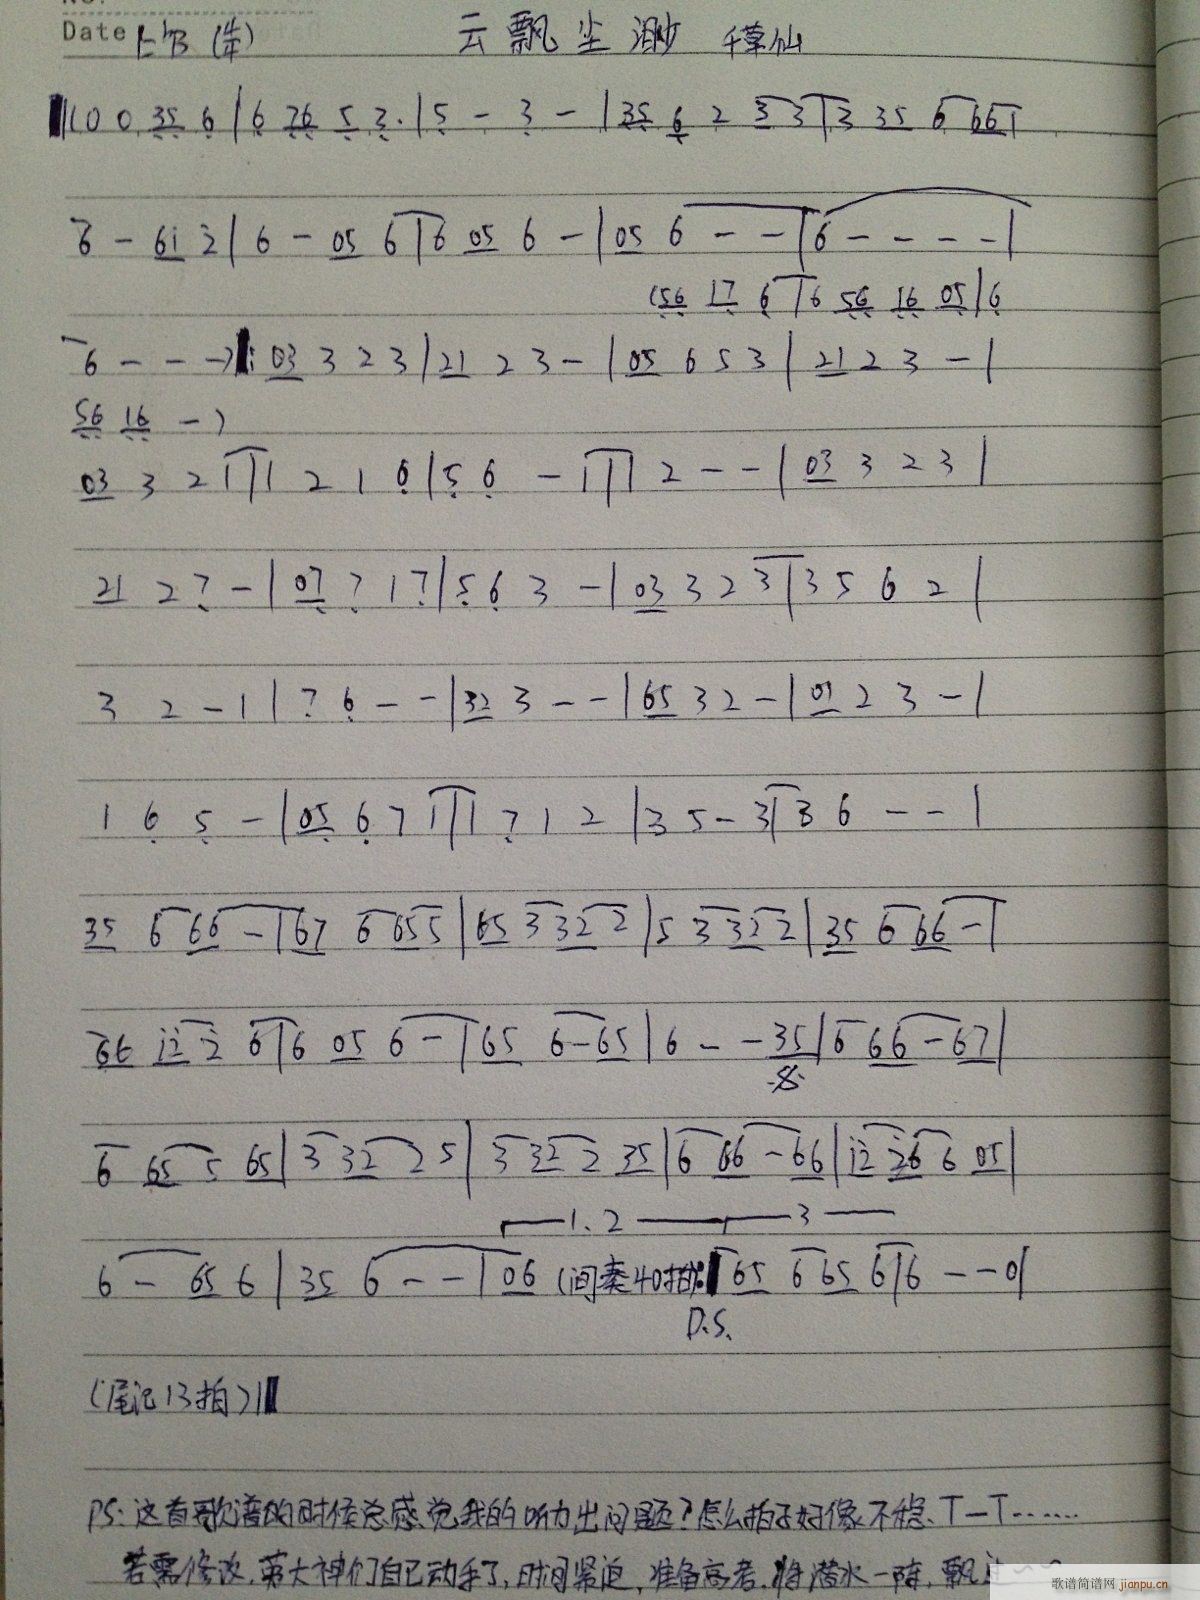 Date
云飘尘渺 千草仙
(0 0 35 6 | 6 76 5 3. | 5 - 3 - | 35 6 2 3 3 | 3 35 6 66 |
6 - 6i 2 | 6 - 05 6 | 6 05 6 - | 05 6 - - | 6 - - - - |
(56 17 6 | 6 56 16 05 | 6
6 - - -) |: 03 3 2 3 | 21 2 3 - | 05 6 5 3 | 21 2 3 - |
56 16 -)
03 3 2 1 | 1 2 1 6 | 5 6 - 1 | 1 2 - - | 03 3 2 3 |
21 2 7 - | 07 7 1 7 | 5 6 3 - | 03 3 2 3 | 3 5 6 2 |
3 2 - 1 | 7 6 - - | 32 3 - - | 65 3 2 - | 01 2 3 - |
1 6 5 - | 05 6 7 1 | 1 7 1 2 | 3 5 - 3 | 3 6 - - |
35 6 66 - | 67 6 65 5 | 65 3 32 2 | 5 3 32 2 | 35 6 66 - |
66 i2 2 6 | 6 05 6 - | 65 6 - 65 | 6 - - 35 | 6 66 - 67 |
6 65 5 65 | 3 32 2 5 | 3 32 2 35 | 6 66 - 66 | i2 26 6 05 |
1. 2 3
6 - 65 6 | 35 6 - - | 06 (间奏40拍) :| 65 6 65 6 | 6 - - 0 |
D.S.
(尾记13拍) ||
PS: 这首歌谱的时候总感觉我的听力出问题?怎么拍子好像不稳、T—T……
若需修改,劳大神们自己动手了,时间紧迫,准备高考,将潜水一阵,飘
歌谱简谱网 jianpu.cn